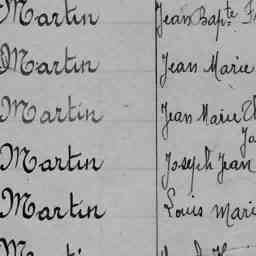 Martin Jean Bapte
Martin Jean Marie
Martin Jean Marie
Martin Joseph Jean
Martin Louis Mari